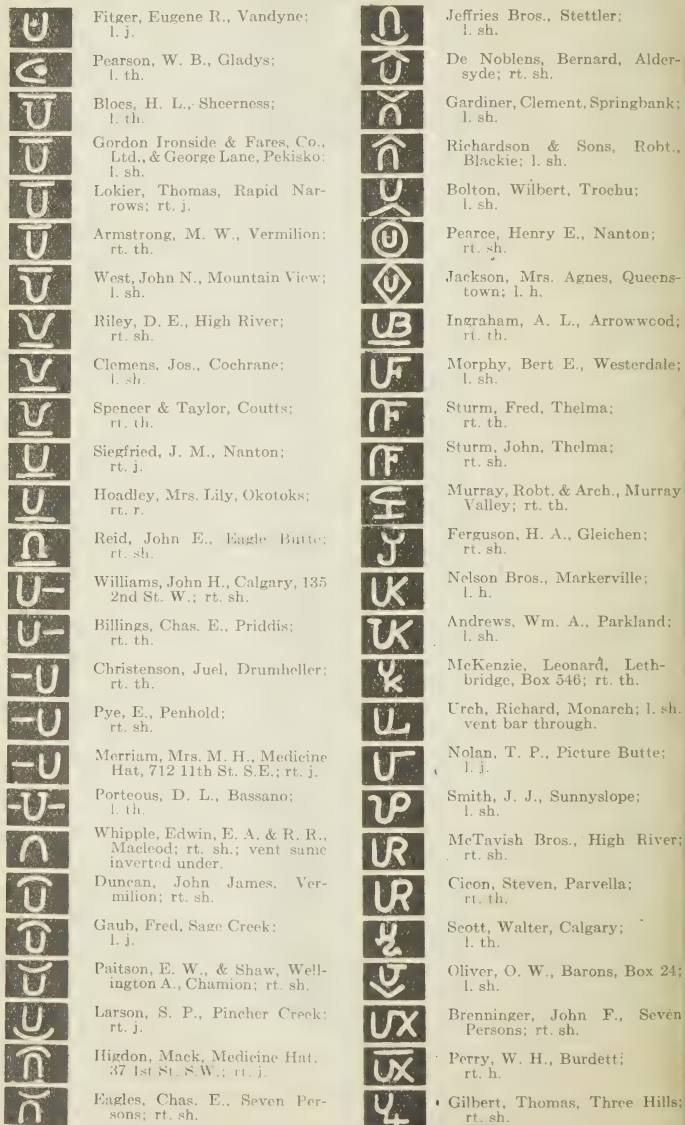 Fitger, Eugene R., Vandyne;
l. j.
Pearson, W. B., Gladys;
l. th.
Bloes, H. L., Sheerness;
l. th.
Gordon Ironside & Fares, Co.,
Ltd., & George Lane, Pekisko;
l. sh.
Lokier, Thomas, Rapid Nar-
rows; rt. j.
Armstrong, M. W., Vermilion;
rt. th.
West, John N., Mountain View;
l. sh.
Riley, D. E., High River;
rt. sh.
Clemens, Jos., Cochrane;
l. sh.
Spencer & Taylor, Coutts;
rt. th.
Siegfried, J. M., Nanton;
rt. j.
Hoadley, Mrs. Lily, Okotoks;
rt. r.
Reid, John E., Eagle Butte;
rt. sh.
Williams, John H., Calgary, 135
2nd St. W.; rt. sh.
Billings, Chas. E., Priddis;
rt. th.
Christenson, Juel, Drumheller;
rt. th.
Pye, E., Penhold;
rt. sh.
Merriam, Mrs. M. H., Medicine
Hat, 712 11th St. S.E.; rt. j.
Porteous, D. L., Bassano;
l. th.
Whipple, Edwin, E. A. & R. R.,
Macleod; rt. sh.; vent same
inverted under.
Duncan, John James, Ver-
milion; rt. sh.
Gaub, Fred, Sage Creek;
l. j.
Paitson, E. W., & Shaw, Well-
ington A., Chamion; rt. sh.
Larson, S. P., Pincher Creek;
rt. j.
Higdon, Mack, Medicine Hat.
37 1st St. S.W.; rt. j.
Eagles, Chas. E., Seven Per-
sons; rt. sh.
Jeffries Bros., Stettler;
l. sh.
De Noblens, Bernard, Alder-
syde; rt. sh.
Gardiner, Clement, Springbank;
l. sh.
Richardson & Sons, Robt.,
Blackie; l. sh.
Bolton, Wilbert, Trochu;
l. sh.
Pearce, Henry E., Nanton;
rt. sh.
Jackson, Mrs. Agnes, Queens-
town; l. h.
UB
Ingraham, A. L., Arrowwood;
rt. th.
UF
Morphy, Bert E., Westerdale;
l. sh.
Sturm, Fred, Thelma;
rt. th.
Sturm, John, Thelma;
rt. sh.
Murray, Robt. & Arch., Murray
Valley; rt. th.
Ferguson, H. A., Gleichen;
rt. sh.
UK
Nelson Bros., Markerville;
l. h.
UK
Andrews, Wm. A., Parkland;
l. sh.
McKenzie, Leonard, Leth-
bridge, Box 546; rt. th.
Urch, Richard, Monarch; l. sh.
vent bar through.
Nolan, T. P., Picture Butte;
l. j.
Smith, J. J., Sunnyslope;
l. sh.
UR
McTavish Bros., High River;
rt. sh.
UR
Cicon, Steven, Parvella;
rt. th.
Scott, Walter, Calgary;
l. th.
Oliver, O. W., Barons, Box 24;
l. sh.
UX
Brenninger, John F., Seven
Persons; rt. sh.
UX
Perry, W. H., Burdett;
rt. h.
Gilbert, Thomas, Three Hills;
rt. sh.